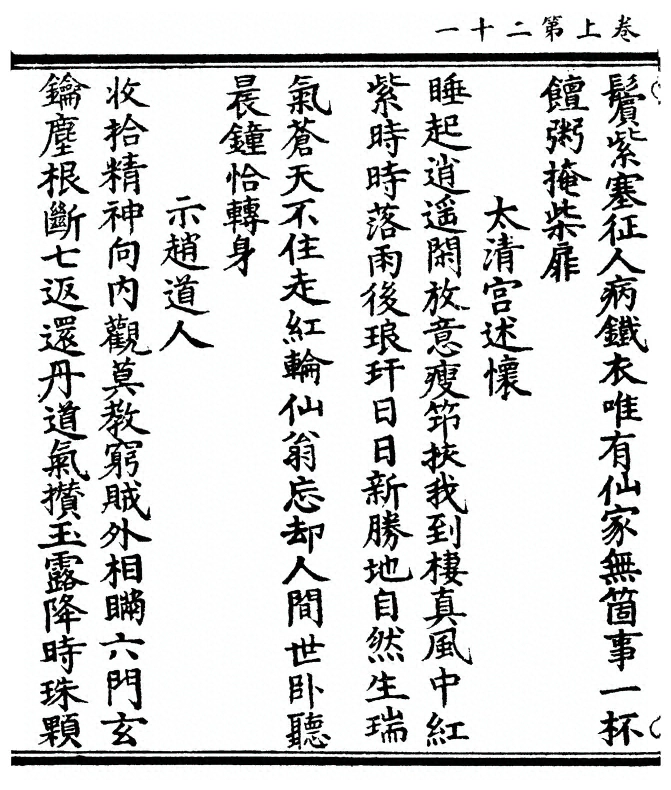 卷上第二十一
鬢紫塞征人病鐵衣唯有仙家無箇事一杯
饘粥掩柴扉
太清宮述懷
睡起逍遥閑放意瘦笻挾我到棲真風中紅
紫時時落雨後琅玕日日新勝地自然生瑞
氣蒼天不住走紅輪仙翁忘却人間世卧聽
晨鐘恰轉身
示趙道人
收拾精神向内觀莫教窮賊外相瞞六門玄
鑰塵根斷七返還丹道氣攢玉露降時珠顆